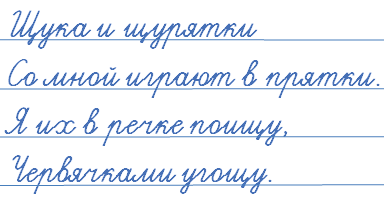 Щука и щурятки
Со мной играют в прятки.
Я их в речке поищу,
Червячками угощу.